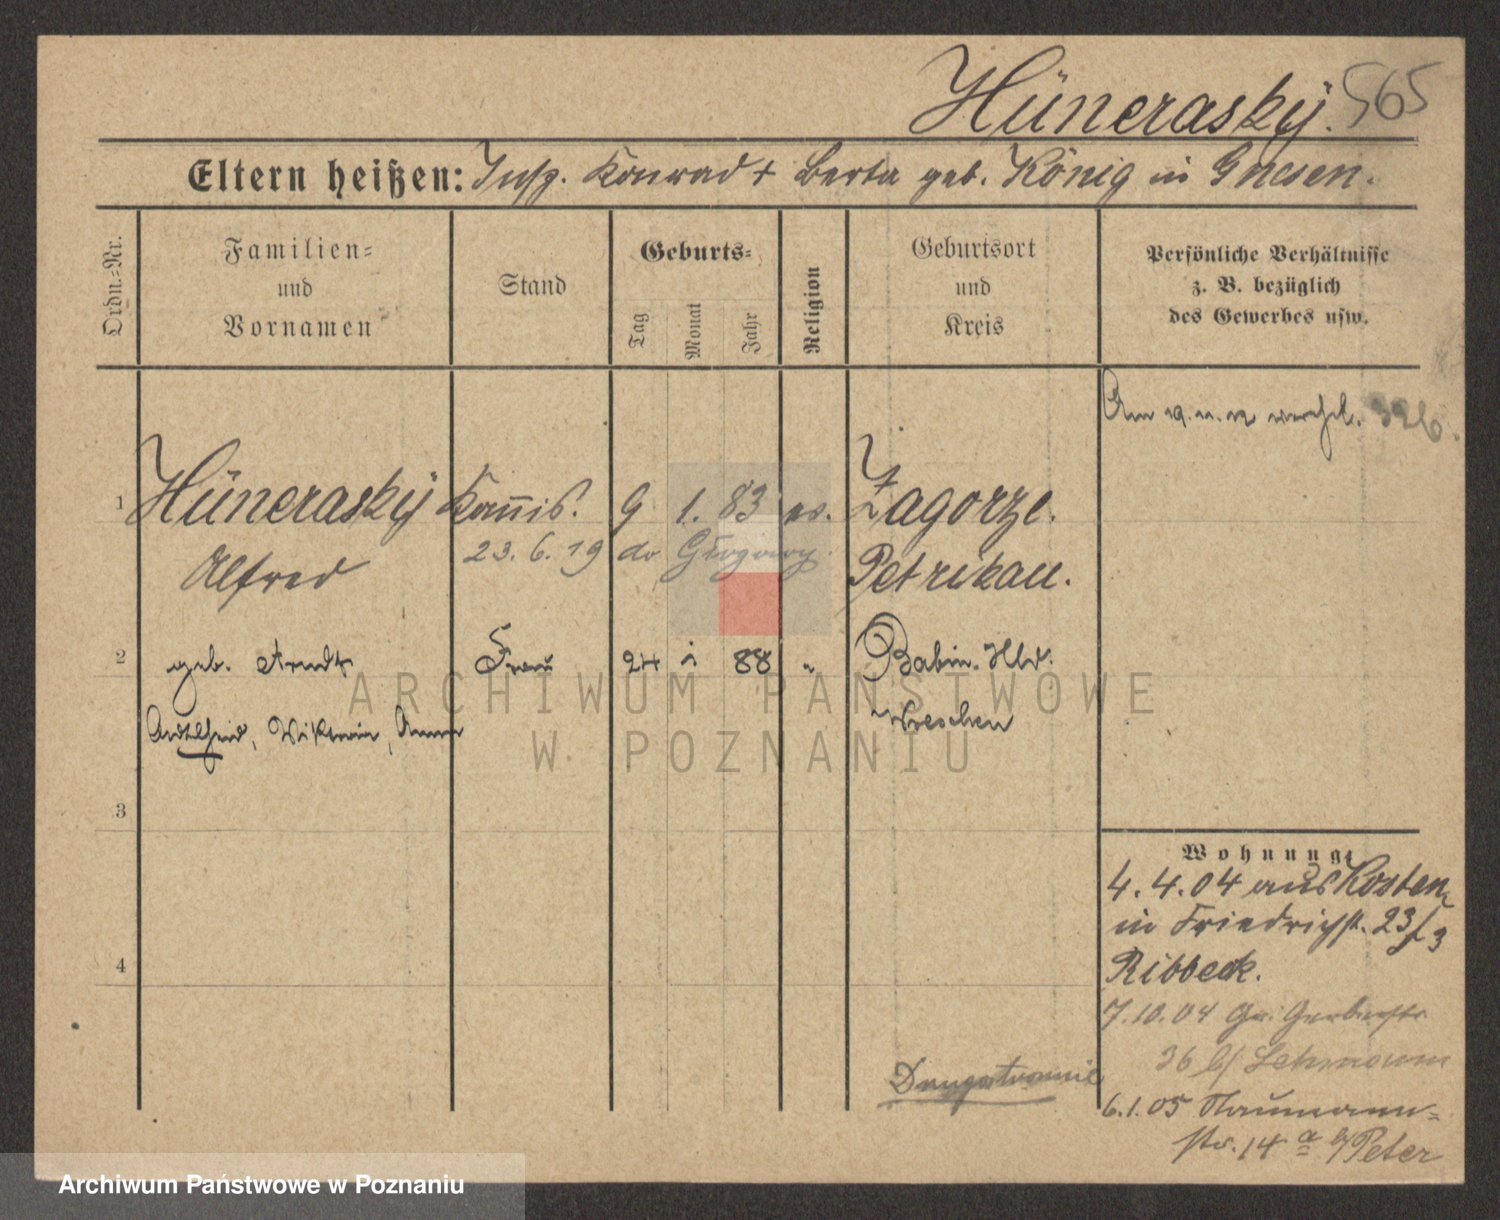 Hünerasky. 565
Eltern heißen: Insp. Konrad + Berta geb. König in Gnesen.
Ordn.-Nr.
Familien-
und
Vornamen
Stand
Geburts-
Tag
Monat
Jahr
Religion
Geburtsort
und
Kreis
Persönliche Verhältnisse
z. B. bezüglich
des Gewerbes usw.
Am 19. 11. 12 326.
1 Hünerasky Kom̄is. 9 1. 83 ev. Zagorze.
Alfred 23. 6. 19 do Petrikau.
2 geb. Arndt Frau 24 1 88 " Babin. Hld.
Adelheid, Anna Wreschen
3
4
Wohnung:
4. 4. 04 aus Kosten
in Friedrichst. 23/3
Ribbeck.
7. 10. 04 Gr. Gerberstr.
36 b/ Lehmann
Drugostronnie
6. 1. 05 Naumann-
str. 14 a b/ Peter
ARCHIWUM PAŃSTWOWE
W POZNANIU
Archiwum Państwowe w Poznaniu